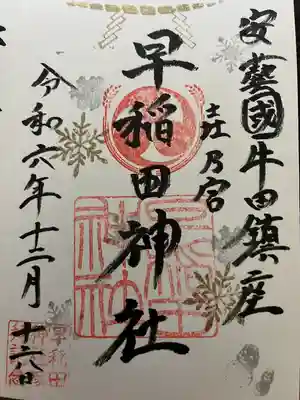 安藝國牛田鎮座
㐂乃宮
早稲田神社
令和六年十二月
十六日